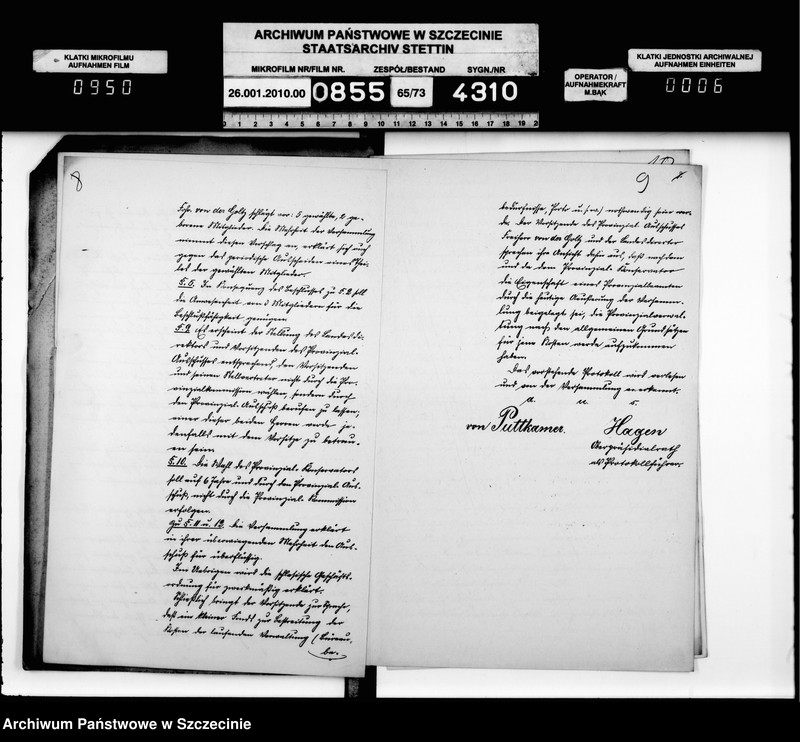 ARCHIWUM PAŃSTWOWE W SZCZECINIE
STAATSARCHIV STETTIN
MIKROFILM NR/FILM NR. ZESPÓŁ/BESTAND SYGN./NR
26.001.2010.00 0855 65/73 4310
0 1 2 3 4 5 6 7 8 9 10 11 12 13 14 15 16 17 18 19 20
KLATKI MIKROFILMU
AUFNAHMEN FILM
0950
OPERATOR /
AUFNAHMEKRAFT
M.BĄK
KLATKI JEDNOSTKI ARCHIWALNEJ
AUFNAHMEN EINHEITEN
0006
8
Frhr. von der Goltz schlägt vor: 5 gewählte, 2 ge-
borene Mitglieder. Die Mehrheit der Versammlung
nimmt diesen Vorschlag an, erklärt sich auch
gegen das periodische Ausscheiden eines Thei-
les der gewählten Mitglieder.
§.5. In Konsequenz des Beschlusses zu §.2 soll
die Anwesenheit von 3 Mitgliedern für die
Beschlußfähigkeit genügen.
§.9. Es erscheint der Stellung des Landesdi-
rektors und Vorsitzenden des Provinzial-
Ausschusses entsprechend, den Vorsitzenden
und seinen Stellvertreter nicht durch die Pro-
vinzialkommission wählen, sondern durch
den Provinzial-Ausschuß berufen zu lassen;
einer dieser beiden Herren werde je-
denfalls mit dem Vorsitze zu betrau-
en sein.
§.10. Die Wahl des Provinzial-Konservators
soll auf 6 Jahre und durch den Provinzial-Aus-
schuß, nicht durch die Provinzial-Kommission
erfolgen.
Zu §.11 u. 12. Die Versammlung erklärt
in ihrer überwiegenden Mehrheit den Aus-
schuß für überflüssig.
Im Uebrigen wird die schlesische Geschäfts-
ordnung für zweckmäßig erklärt.
Schließlich bringt der Vorsitzende zur Sprache,
daß ein kleiner Fonds zur Bestreitung der
Kosten der laufenden Verwaltung (Büreau-
be-
9
bedürfnisse, Porto u.s.w.) nothwendig sein wer-
de. Der Vorsitzende des Provinzial-Ausschusses
Freiherr von der Goltz und der Landesdirektor
sprechen ihre Ansicht dahin aus, daß nachdem
die Eigenschaft eines Provinzialbeamten
durch die heutige Äußerung der Versamm-
lung beigelegt sei, die Provinzialverwal-
tung nach den allgemeinen Grundsätzen
für jene Kosten werde aufzukommen
haben.
Das vorstehende Protokoll wird verlesen
und von der Versammlung anerkannt.
a. u. s.
von Puttkamer. Hagen
Oberpräsidialrath
als Protokollführer
Archiwum Państwowe w Szczecinie